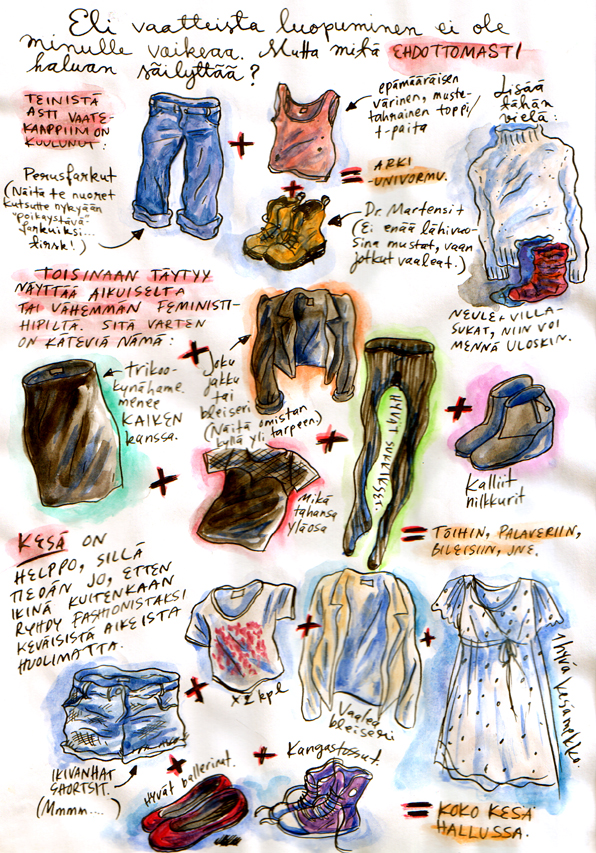 Eli vaatteista luopuminen ei ole
minulle vaikeaa. Mutta mitä EHDOTTOMASTI
haluan säilyttää?
TEINISTÄ
ASTI VAATE-
KAAPPIIN ON
KUULUNUT:
Perusfarkut
(Näitä te nuoret
kutsutte nykyään
"poikaystävä"
farkuiksi...
tirsk!)
+
epämääräisen
värinen, muste-
tahnainen toppi/
t-paita
+
= ARKI
-UNIVORMU.
Dr. Martensit
(Ei enää lähivuo-
sina mustat, vaan
jotkut vaaleat.)
Lisää
tähän
vielä:
NEULE + VILLA-
SUKAT, NIIN VOI
MENNÄ ULOSKIN.
TOISINAAN TÄYTYY
NÄYTTÄÄ AIKUISELTA
TAI VÄHEMMÄN FEMINISTI-
HIPILTÄ. SITÄ VARTEN
ON KÄTEVIÄ NÄMÄ:
trikoo-
kynähame.
menee
KAIKEN
kanssa.
+
Joku
jakku
tai
bleiseri
(Näitä omistan
kyllä yli tarpeen.)
+
Mikä
tahansa
yläosa
+
HYVÄT SUKKIKSET.
+
Kalliit
nilkkurit
= TÖIHIN, PALAVERIIN,
BILEISIIN, JNE.
KESÄ ON
HELPPO, SILLÄ
TIEDÄN JO, ETTEN
IKINÄ KUITENKAAN
RYHDY FASHIONISTAKSI
KEVÄISISTÄ AIKEISTA
HUOLIMATTA.
IKIVANHAT
SHORTSIT.
(Mmmm....)
+
x2 kpl
+
Vaalea
bleiseri
+
Hyvä kesämekko.
+
Hyvät ballerinat.
+
Kangastossut.
= KOKO KESÄ
HALLUSSA.